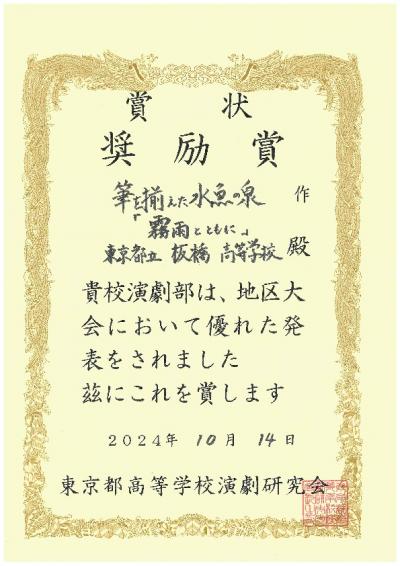 賞状
奨励賞
筆を揃えた水魚の泉 作
「霧雨とともに」
東京都立 板橋 高等学校 殿
貴校演劇部は、地区大
会において優れた発
表をされました
茲にこれを賞します
2024年 10月 14日
東京都高等学校演劇研究会